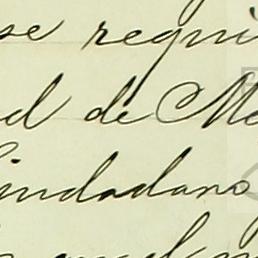 se requi
el de Me
Ciudadano